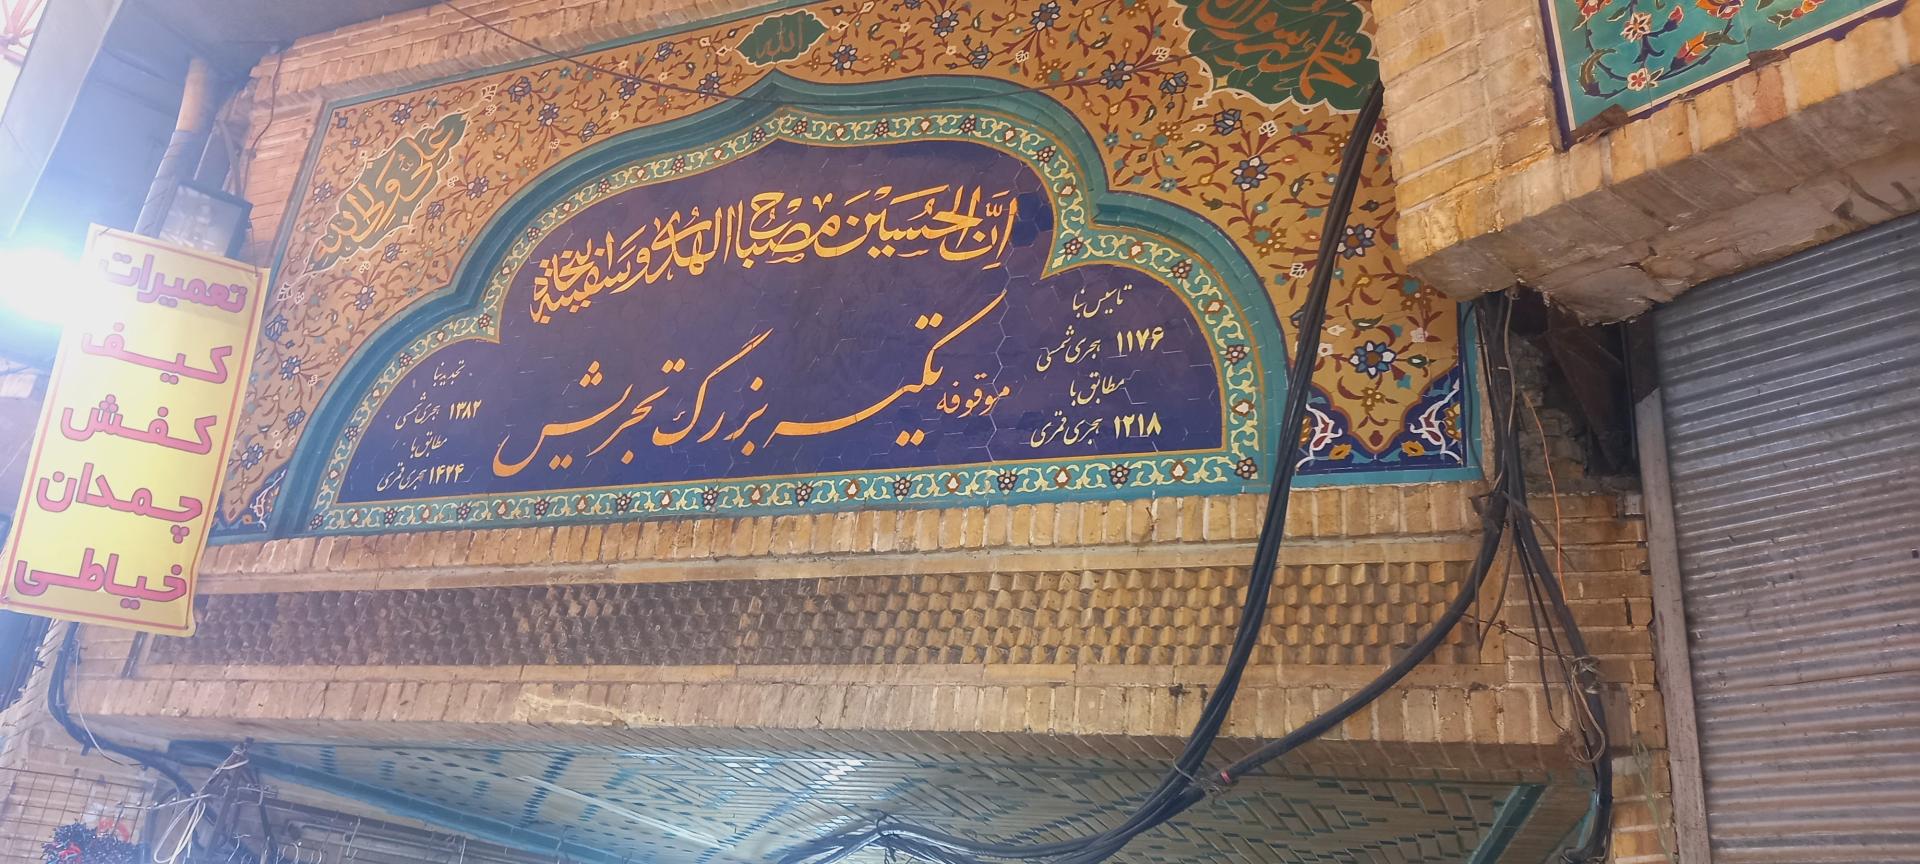 الله
محمد رسول الله
علی ولی الله
ان الحسین مصباح الهدی و سفینة نجاة
موقوفه
تکیه بزرگ تجریش
تاسیس بنا
۱۱۷۶ هجری شمسی
مطابق با
۱۲۱۸ هجری قمری
تجدید بنا
۱۳۸۲ هجری شمسی
مطابق با
۱۴۲۴ هجری قمری
تعمیرات
کیف
کفش
چمدان
خیاطی